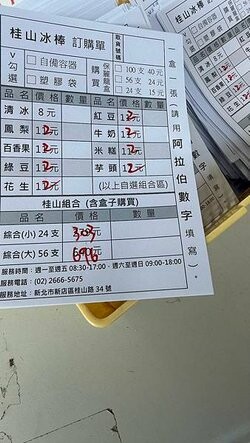 桂山冰棒 訂購單
取貨號碼
V勾選 □自備容器 □塑膠袋
購買保麗龍盒 □100支 40元 □56支 24元 □24支 15元
品名 價格 數量 品名 價格 數量
清冰 8元 紅豆 12元
鳳梨 12元 牛奶 12元
百香果 12元 米糕 12元
綠豆 12元 芋頭 12元
花生 12元 (以上自選組合區)
桂山組合 (含盒子購買)
品名 價格 數量
綜合(小) 24支 303元
綜合(大) 56支 696元
服務時間:週一至週五 08:30-17:00、週六至週日 09:00-18:00
服務電話:(02) 2666-5675
服務地址:新北市新店區桂山路 34 號
一盒一張(請用阿拉伯數字填寫)。